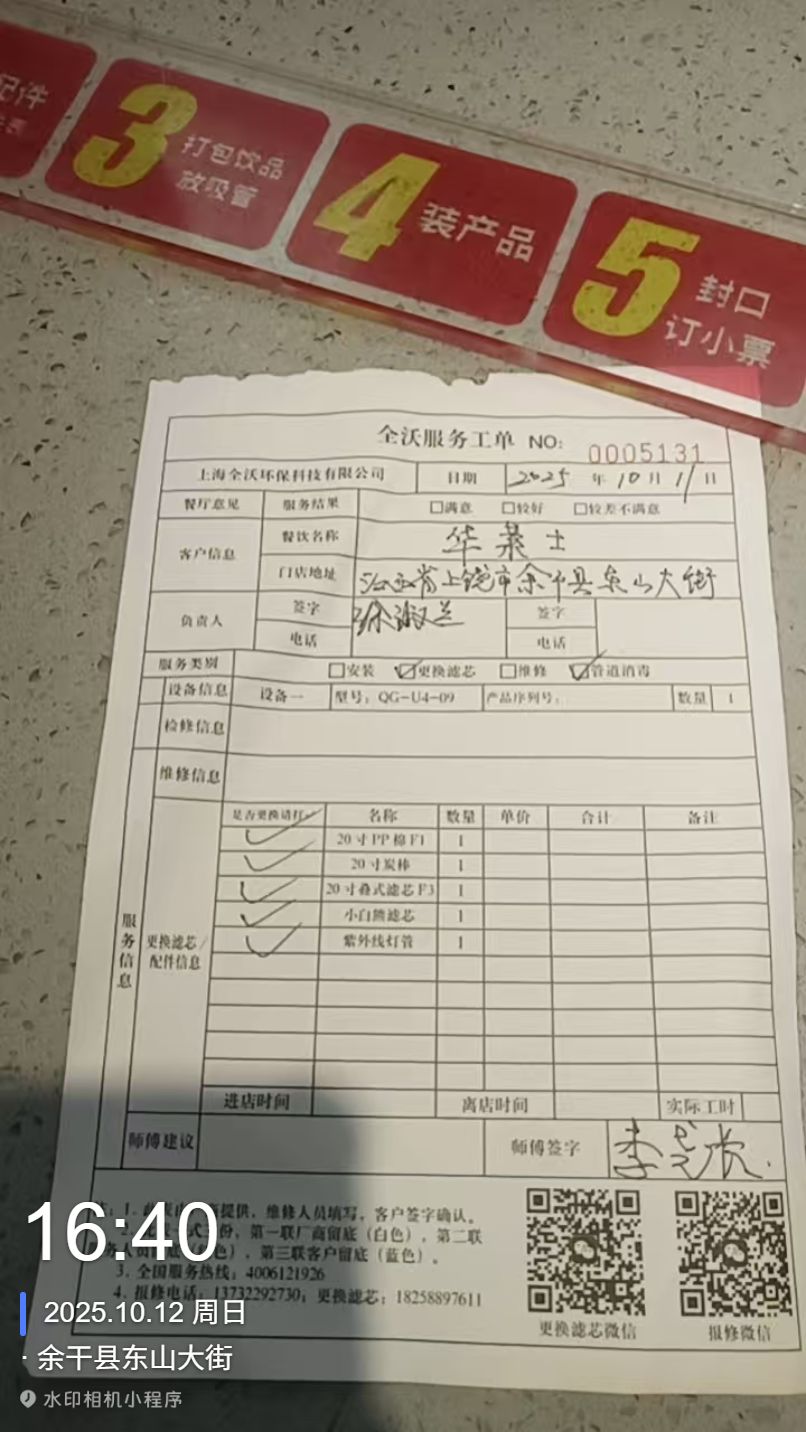 配件
3 打包饮品
放吸管
4 装产品
5 封口
订小票
全沃服务工单 NO: 0005131
上海全沃环保科技有限公司 日期 2025 年 10 月 11 日
餐厅意见 服务结果 □满意 □较好 □较差不满意
客户信息 餐饮名称 华莱士
门店地址 江西省上饶市余干县东山大街
负责人 签字 徐淑兰 签字
电话 电话
服务类别 □安装 ☑更换滤芯 □维修 ☑管道消毒
设备信息 设备一 型号: QG-U4-09 产品序列号: 数量 1
检修信息
维修信息
服务信息
更换滤芯/
配件信息
是否更换请打✓ 名称 数量 单价 合计 备注
✓ 20寸PP棉F1 1
✓ 20寸炭棒 1
✓ 20寸叠式滤芯F3 1
✓ 小白熊滤芯 1
✓ 紫外线灯管 1
进店时间 离店时间 实际工时
师傅建议 师傅签字 李
注: 1. 提供, 维修人员填写, 客户签字确认。
份, 第一联厂商留底(白色), 第二联
人员 色), 第三联客户留底(蓝色)。
3. 全国服务热线: 4006121926
4. 报修电话: 13732292730; 更换滤芯: 18258897611
更换滤芯微信 报修微信
16:40
2025.10.12 周日
· 余干县东山大街
水印相机小程序